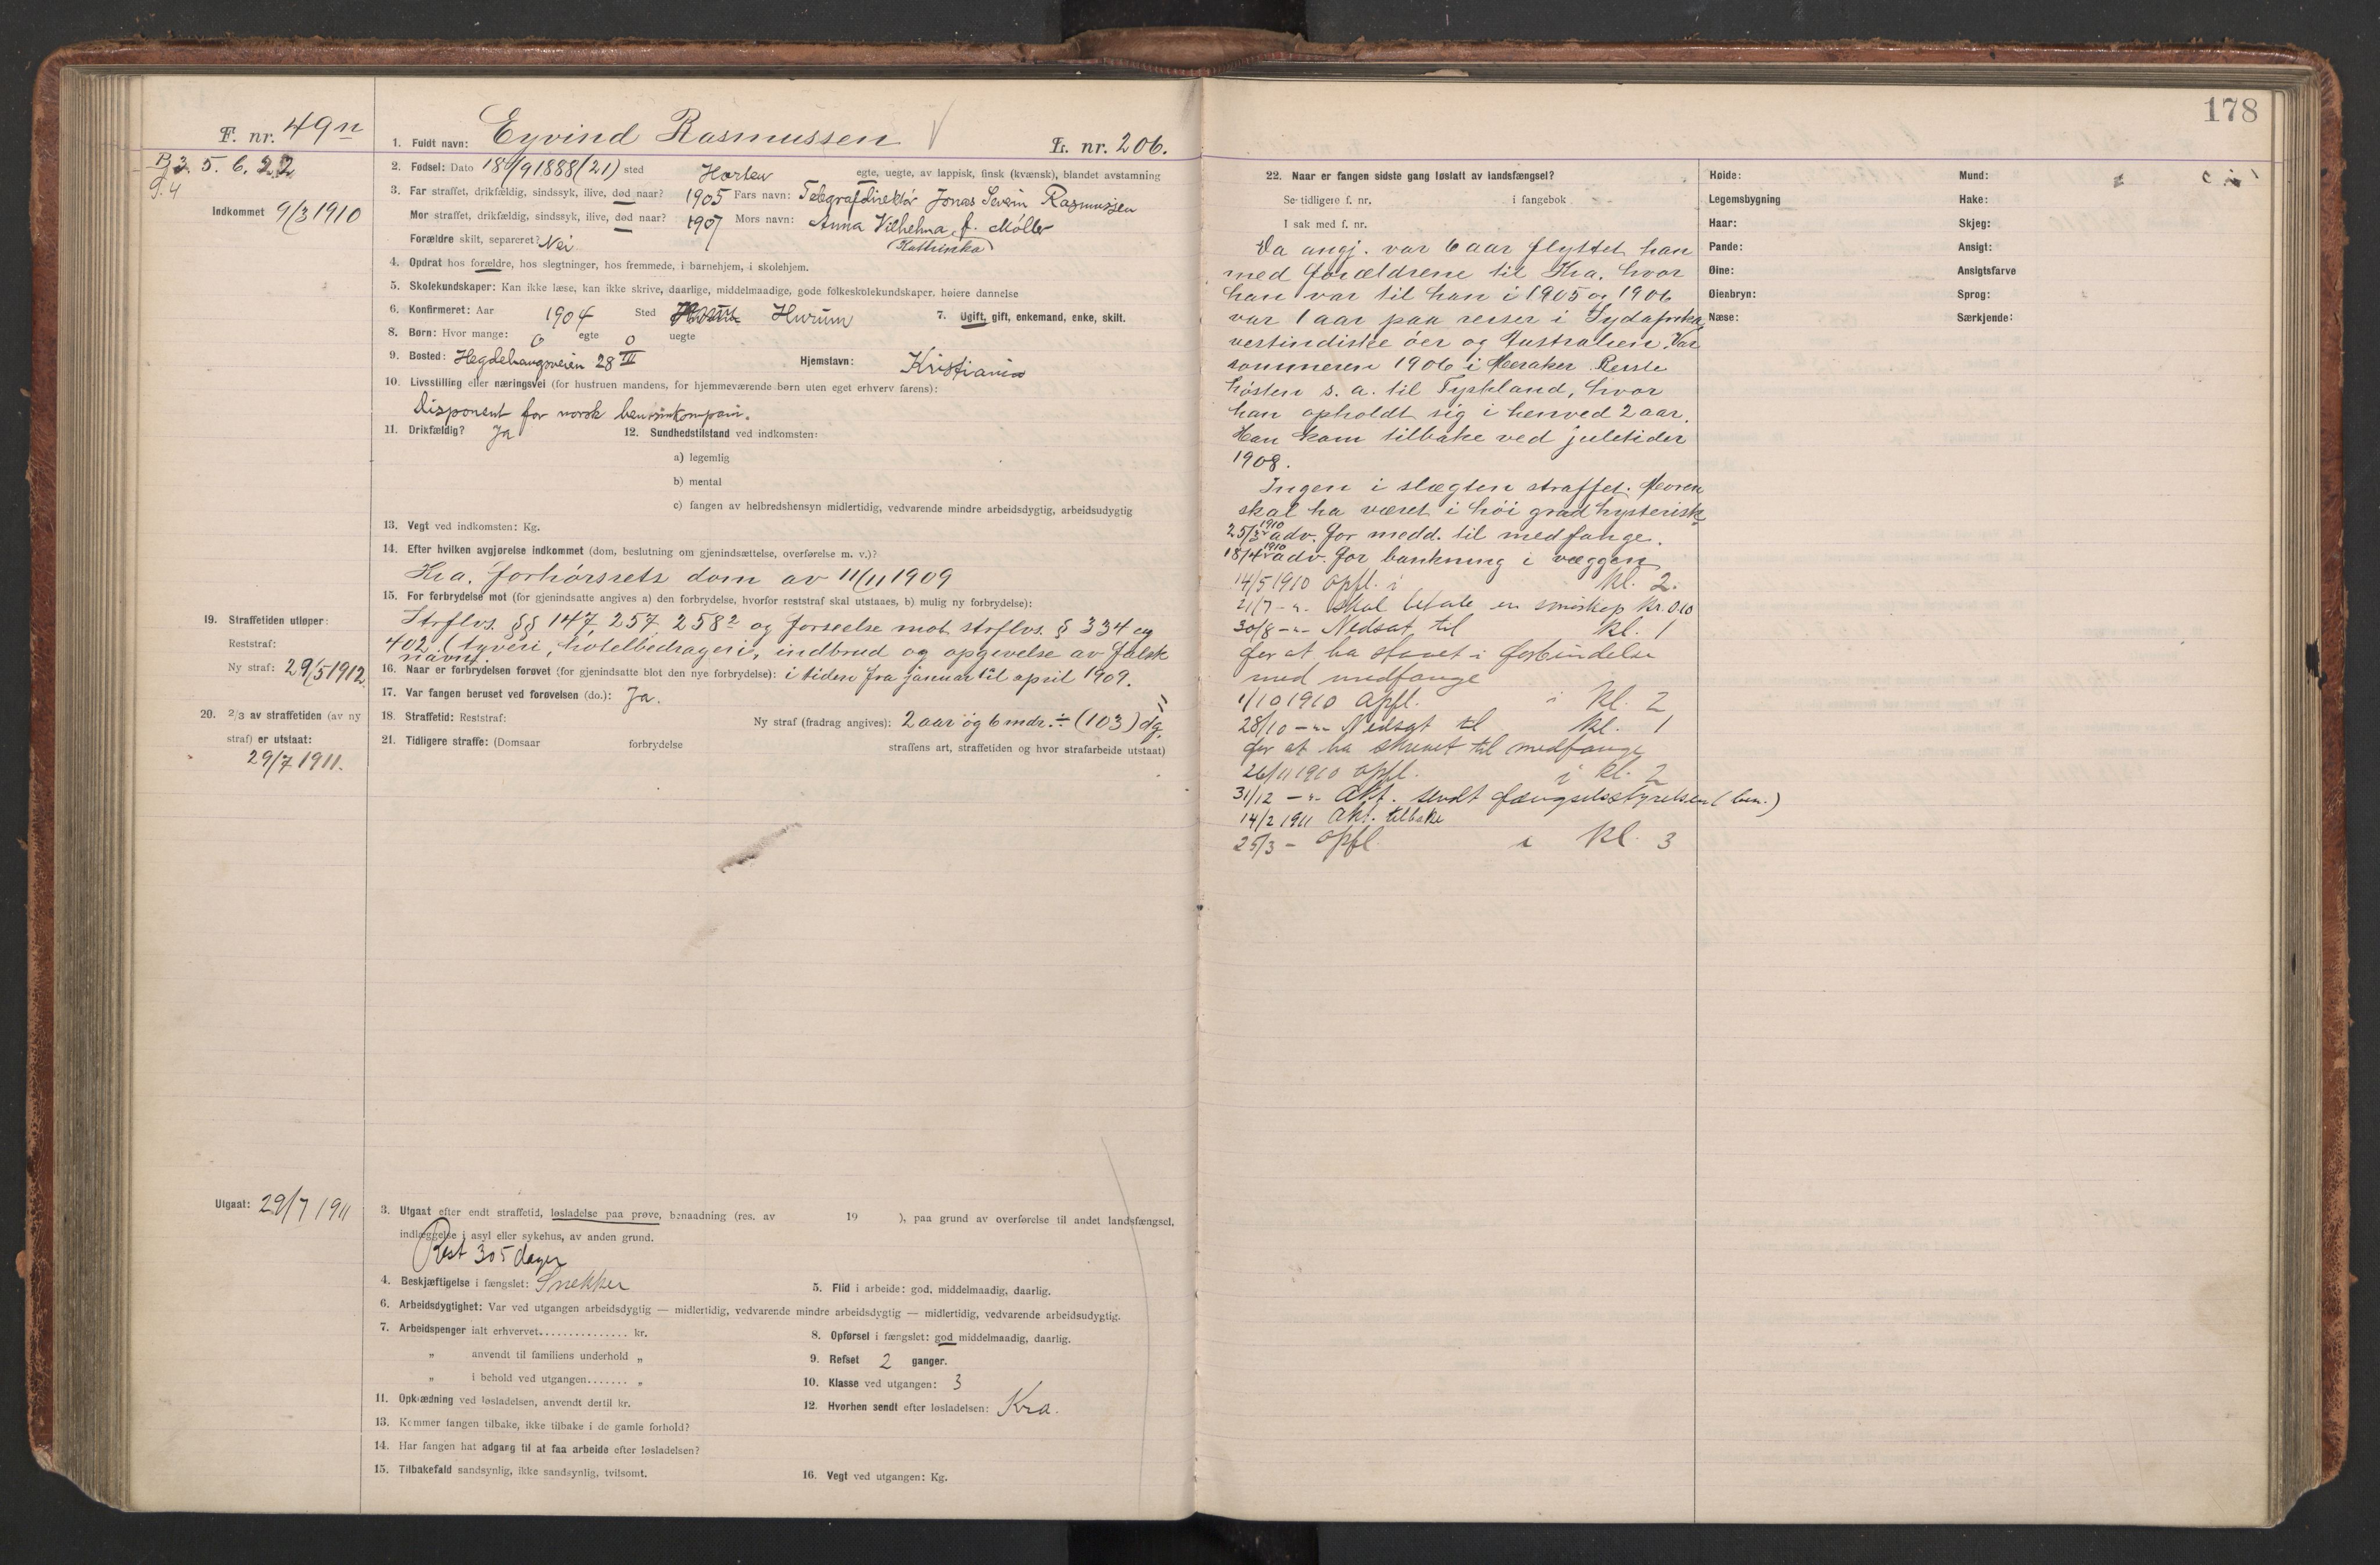 178
F. nr. 49n
1. Fuldt navn: Eyvind Rasmussen
L. nr. 206.
B 3. 5. 6. 22
9.4
Indkommet 9/3 1910
2. Fødsel: Dato 18/9 1888 (21) sted Horten egte, uegte, av lappisk, finsk (kvænsk), blandet avstamning
3. Far straffet, drikfældig, sindssyk, ilive, død naar? 1905 Fars navn: Telegrafdirektör Jonas Severin Rasmussen
Mor straffet, drikfældig, sindssyk, ilive, død naar? 1907 Mors navn: Anna Vilhelma f. Möller
(Kathinka)
Forældre skilt, separeret? Nei
4. Opdrat hos forældre, hos slegtninger, hos fremmede, i barnehjem, i skolehjem.
5. Skolekundskaper: Kan ikke læse, kan ikke skrive, daarlige, middelmaadige, gode folkeskolekundskaper, høiere dannelse
6. Konfirmeret: Aar 1904 Sted Hurum 7. Ugift, gift, enkemand, enke, skilt.
8. Børn: Hvor mange: 0 egte 0 uegte
9. Bosted: Hegdehaugsveien 28 III Hjemstavn: Kristiania
10. Livsstilling eller næringsvei (for hustruen mandens, for hjemmeværende børn uten eget erhverv farens):
Disponent for norsk bensinkompani.
11. Drikfældig? Ja 12. Sundhedstilstand ved indkomsten:
a) legemlig
b) mental
c) fangen av helbredshensyn midlertidig, vedvarende mindre arbeidsdygtig, arbeidsudygtig
13. Vegt ved indkomsten: Kg.
14. Efter hvilken avgjørelse indkommet (dom, beslutning om gjenindsættelse, overførelse m. v.)?
Kra. forhörsrets dom av 11/11 1909
15. For forbrydelse mot (for gjenindsatte angives a) den forbrydelse, hvorfor reststraf skal utstaaes, b) mulig ny forbrydelse):
Strflvs. §§ 147, 257 258² og forseelse mot strflvs. § 334 og
402. (tyveri, hotelbedrageri, indbrud og opgivelse av falsk
navn.
16. Naar er forbrydelsen forøvet (for gjenindsatte blot den nye forbrydelse): i tiden fra januar til april 1909.
17. Var fangen beruset ved forøvelsen (do.): Ja.
18. Straffetid: Reststraf: Ny straf (fradrag angives): 2 aar og 6 mdr. ÷ (103) dg.
19. Straffetiden utløper:
Reststraf:
Ny straf: 29/5 1912
20. 2/3 av straffetiden (av ny
straf) er utstaat:
29/7 1911.
21. Tidligere straffe: (Domsaar forbrydelse straffens art, straffetiden og hvor strafarbeide utstaat)
Utgaat: 29/7 1911
3. Utgaat efter endt straffetid, løsladelse paa prøve, benaadning (res. av 19 ), paa grund av overførelse til andet landsfængsel,
indlæggelse i asyl eller sykehus, av anden grund.
Rest 305 dager
4. Beskjæftigelse i fængslet: Snekker 5. Flid i arbeide: god, middelmaadig, daarlig.
6. Arbeidsdygtighet: Var ved utgangen arbeidsdygtig — midlertidig, vedvarende mindre arbeidsdygtig — midlertidig, vedvarende arbeidsudygtig.
7. Arbeidspenger ialt erhvervet............... kr.
8. Opførsel i fængslet: god middelmaadig, daarlig.
„ anvendt til familiens underhold „
9. Refset 2 ganger.
„ i behold ved utgangen....... „
10. Klasse ved utgangen: 3
11. Opklædning ved løsladelsen, anvendt dertil kr.
12. Hvorhen sendt efter løsladelsen: Kra.
13. Kommer fangen tilbake, ikke tilbake i de gamle forhold?
14. Har fangen hat adgang til at faa arbeide efter løsladelsen?
15. Tilbakefald sandsynlig, ikke sandsynlig, tvilsomt.
16. Vegt ved utgangen: Kg.
22. Naar er fangen sidste gang løslatt av landsfængsel?
Se tidligere f. nr. i fangebok
I sak med f. nr.
Da angj. var 6 aar flyttet han
med forældrene til Kra. hvor
han var til han i 1905 og 1906
var 1 aar paa reiser i Sydafrika,
vestindiske öer og Australien. Var
sommeren 1906 i Meraker. Reiste
hösten s. a. til Tyskland, hvor
han opholdt sig i henved 2 aar.
Han kom tilbake ved juletider
1908.
Ingen i slægten straffet. Moren
skal ha været i höi grad hysterisk
25/3 1910 adv. for medd. til medfange.
18/4 1910 adv. for bankning i væggen
14/5 1910 opfl. i Kl. 2.
21/7 -"- skal betale en kr. 0.10
30/8 -"- Nedsat til kl. 1
for at ha staaet i forbindelse
med medfange
1/10 1910 opfl. i Kl. 2
28/10 -"- Nedsat til Kl. 1
for at ha skrevet til medfange
26/11 1910 opfl. i kl. 2
31/12 -"- Akt. sendt fængselsstyrelsen (ben.)
14/2 1911 Akt. tilbake
25/3 - opfl. i Kl. 3
Høide:
Legemsbygning
Haar:
Pande:
Øine:
Øieabryn:
Næse:
Mund:
Hake:
Skjeg:
Ansigt:
Ansigtsfarve
Sprog:
Særkjende: